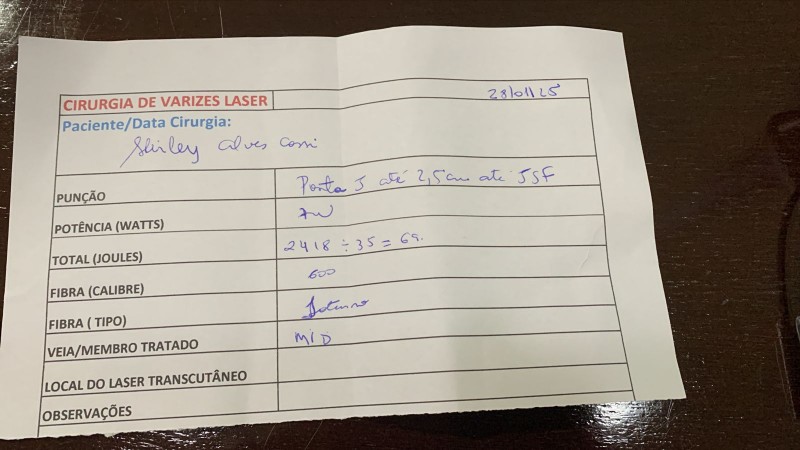 CIRURGIA DE VARIZES LASER 28/01/25
Paciente/Data Cirurgia:
Shirley Alves
PUNÇÃO Ponta J até 2,5cm até JSF
POTÊNCIA (WATTS) 7W
TOTAL (JOULES) 2418 ÷ 35 = 69.
FIBRA (CALIBRE) 600
FIBRA ( TIPO)
VEIA/MEMBRO TRATADO MID
LOCAL DO LASER TRANSCUTÂNEO
OBSERVAÇÕES